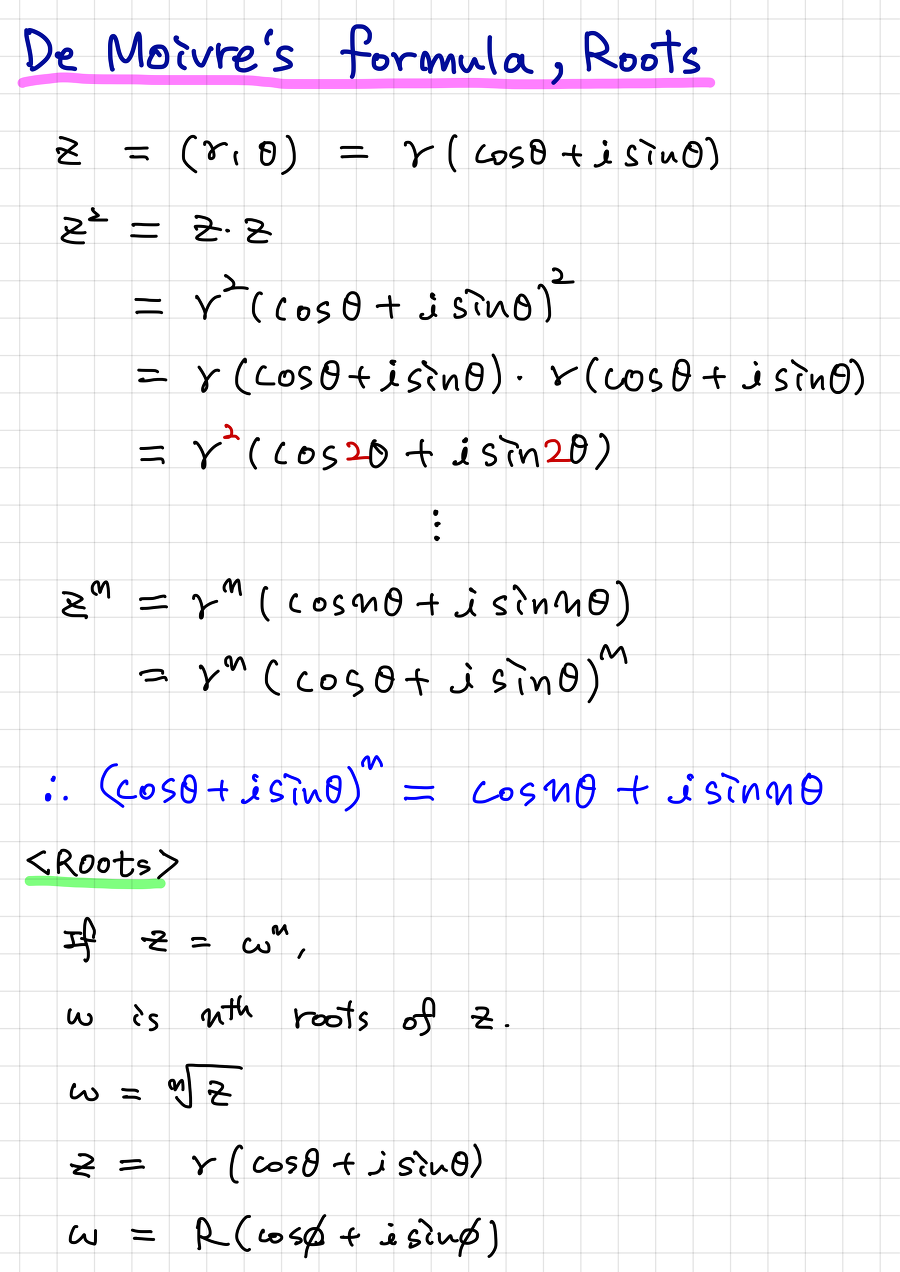 De Moivre's formula, Roots
z = (r, θ) = r(cosθ + i sinθ)
z² = z·z
= r²(cosθ + i sinθ)²
= r(cosθ + i sinθ)·r(cosθ + i sinθ)
= r²(cos2θ + i sin2θ)
⋮
zⁿ = rⁿ(cosnθ + i sinnθ)
= rⁿ(cosθ + i sinθ)ⁿ
∴ (cosθ + i sinθ)ⁿ = cosnθ + i sinnθ
<Roots>
If z = ωⁿ,
ω is nth roots of z.
ω = ⁿ√z
z = r(cosθ + i sinθ)
ω = R(cosϕ + i sinϕ)